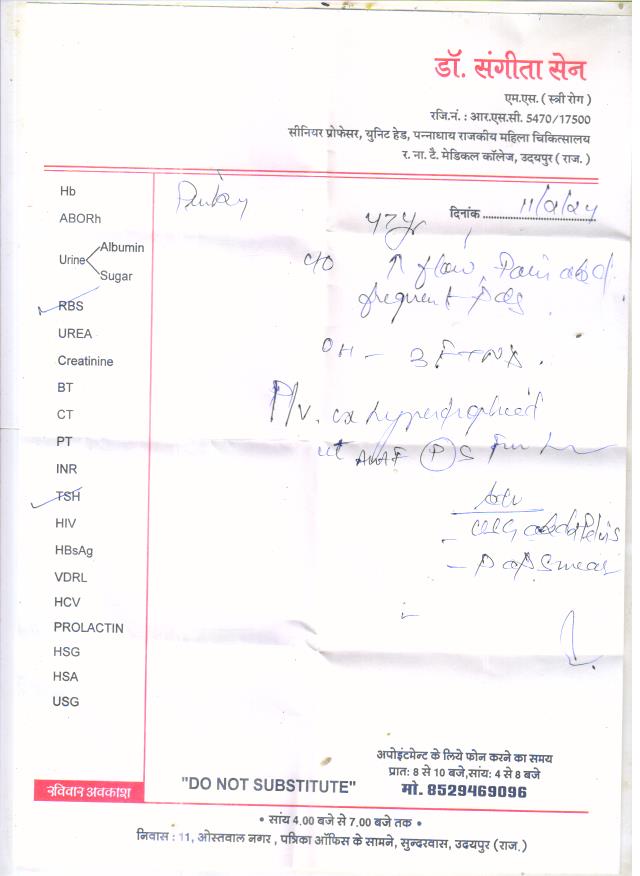 डॉ. संगीता सेन
एम.एस. ( स्त्री रोग )
रजि.नं. : आर.एस.सी. 5470/17500
सीनियर प्रोफेसर, युनिट हेड, पन्नाधाय राजकीय महिला चिकित्सालय
र. ना. टै. मेडिकल कॉलेज, उदयपुर ( राज. )
Hb
ABORh
Urine Albumin
Sugar
RBS
UREA
Creatinine
BT
CT
PT
INR
TSH
HIV
HBsAg
VDRL
HCV
PROLACTIN
HSG
HSA
USG
दिनांक
c/o ↑ flow, Pain abd.
frequent
OH - 3FTND.
P/v. cx hypertrophied
ut (P)
Adv
- USG abd Pelvis
- PAP Smear
रविवार अवकाश
"DO NOT SUBSTITUTE"
अपोइंटमेन्ट के लिये फोन करने का समय
प्रात: 8 से 10 बजे,सांय: 4 से 8 बजे
मो. 8529469096
• सांय 4.00 बजे से 7.00 बजे तक •
निवास : 11, ओस्तवाल नगर , पत्रिका ऑफिस के सामने, सुन्दरवास, उदयपुर (राज.)